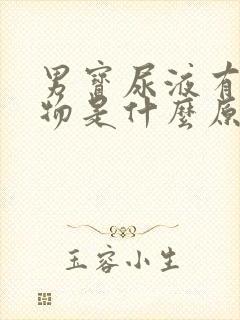 男寶尿液有
物是什麼原
玉容小生